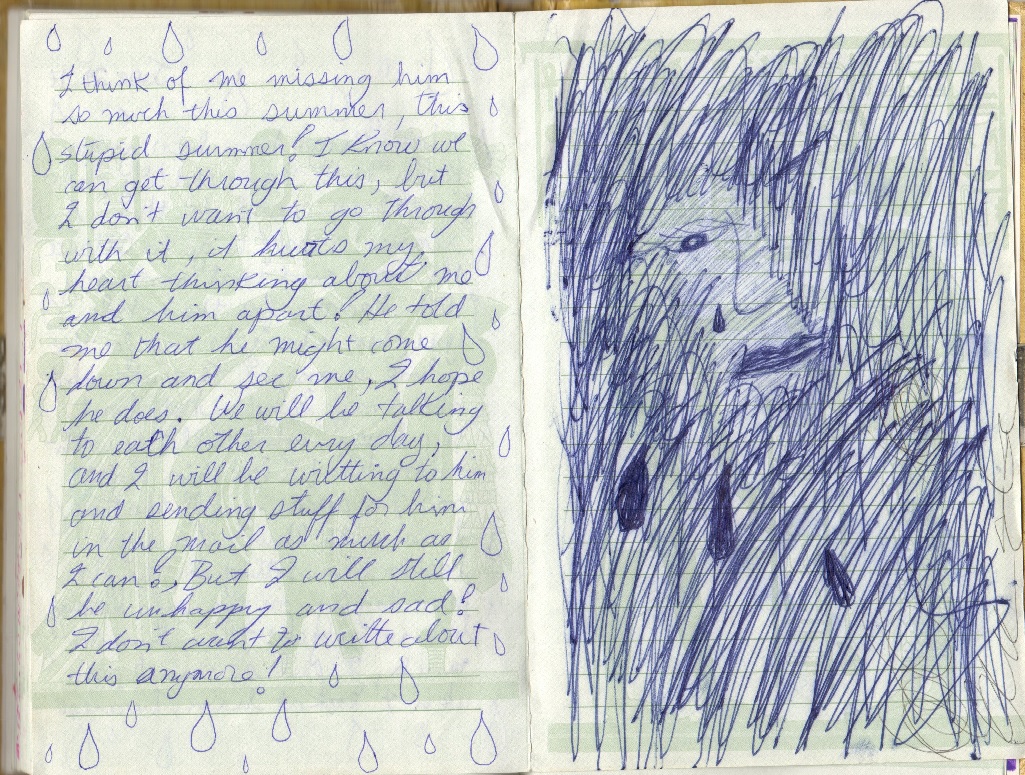 I think of me missing him
so much this summer, this
stupid summer! I know we
can get through this, but
I don't want to go through
with it, it hurts my
heart thinking about me
and him apart! He told
me that he might come
down and see me, I hope
he does. We will be talking
to each other every day,
and I will be writting to him
and sending stuff for him
in the mail as much as
I can. But I will still
be unhappy and sad!
I don't want to writte about
this anymore!